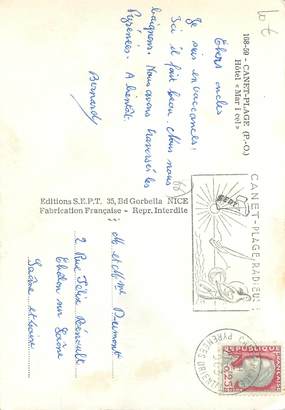 10 €
168-59 - CANET-PLAGE (P.-O.)
Hôtel « Mar i cel »
Chers oncles
Je suis en vacances.
Ici il fait beau. Nous nous
baignons. Nous avons traversé les
Pyrénées. A bientôt.
Bernard
Editions S.E.P.T. 35, Bd Gorbella NICE
Fabrication Française - Repr. Interdite
CANET-PLAGE, RADIEUSE
PYRENEES ORIENTALES
REPUBLIQUE FRANÇAISE
0,25
M et Mme
2 Rue Félix Renault
Chalon sur Saône
Saône et Loire